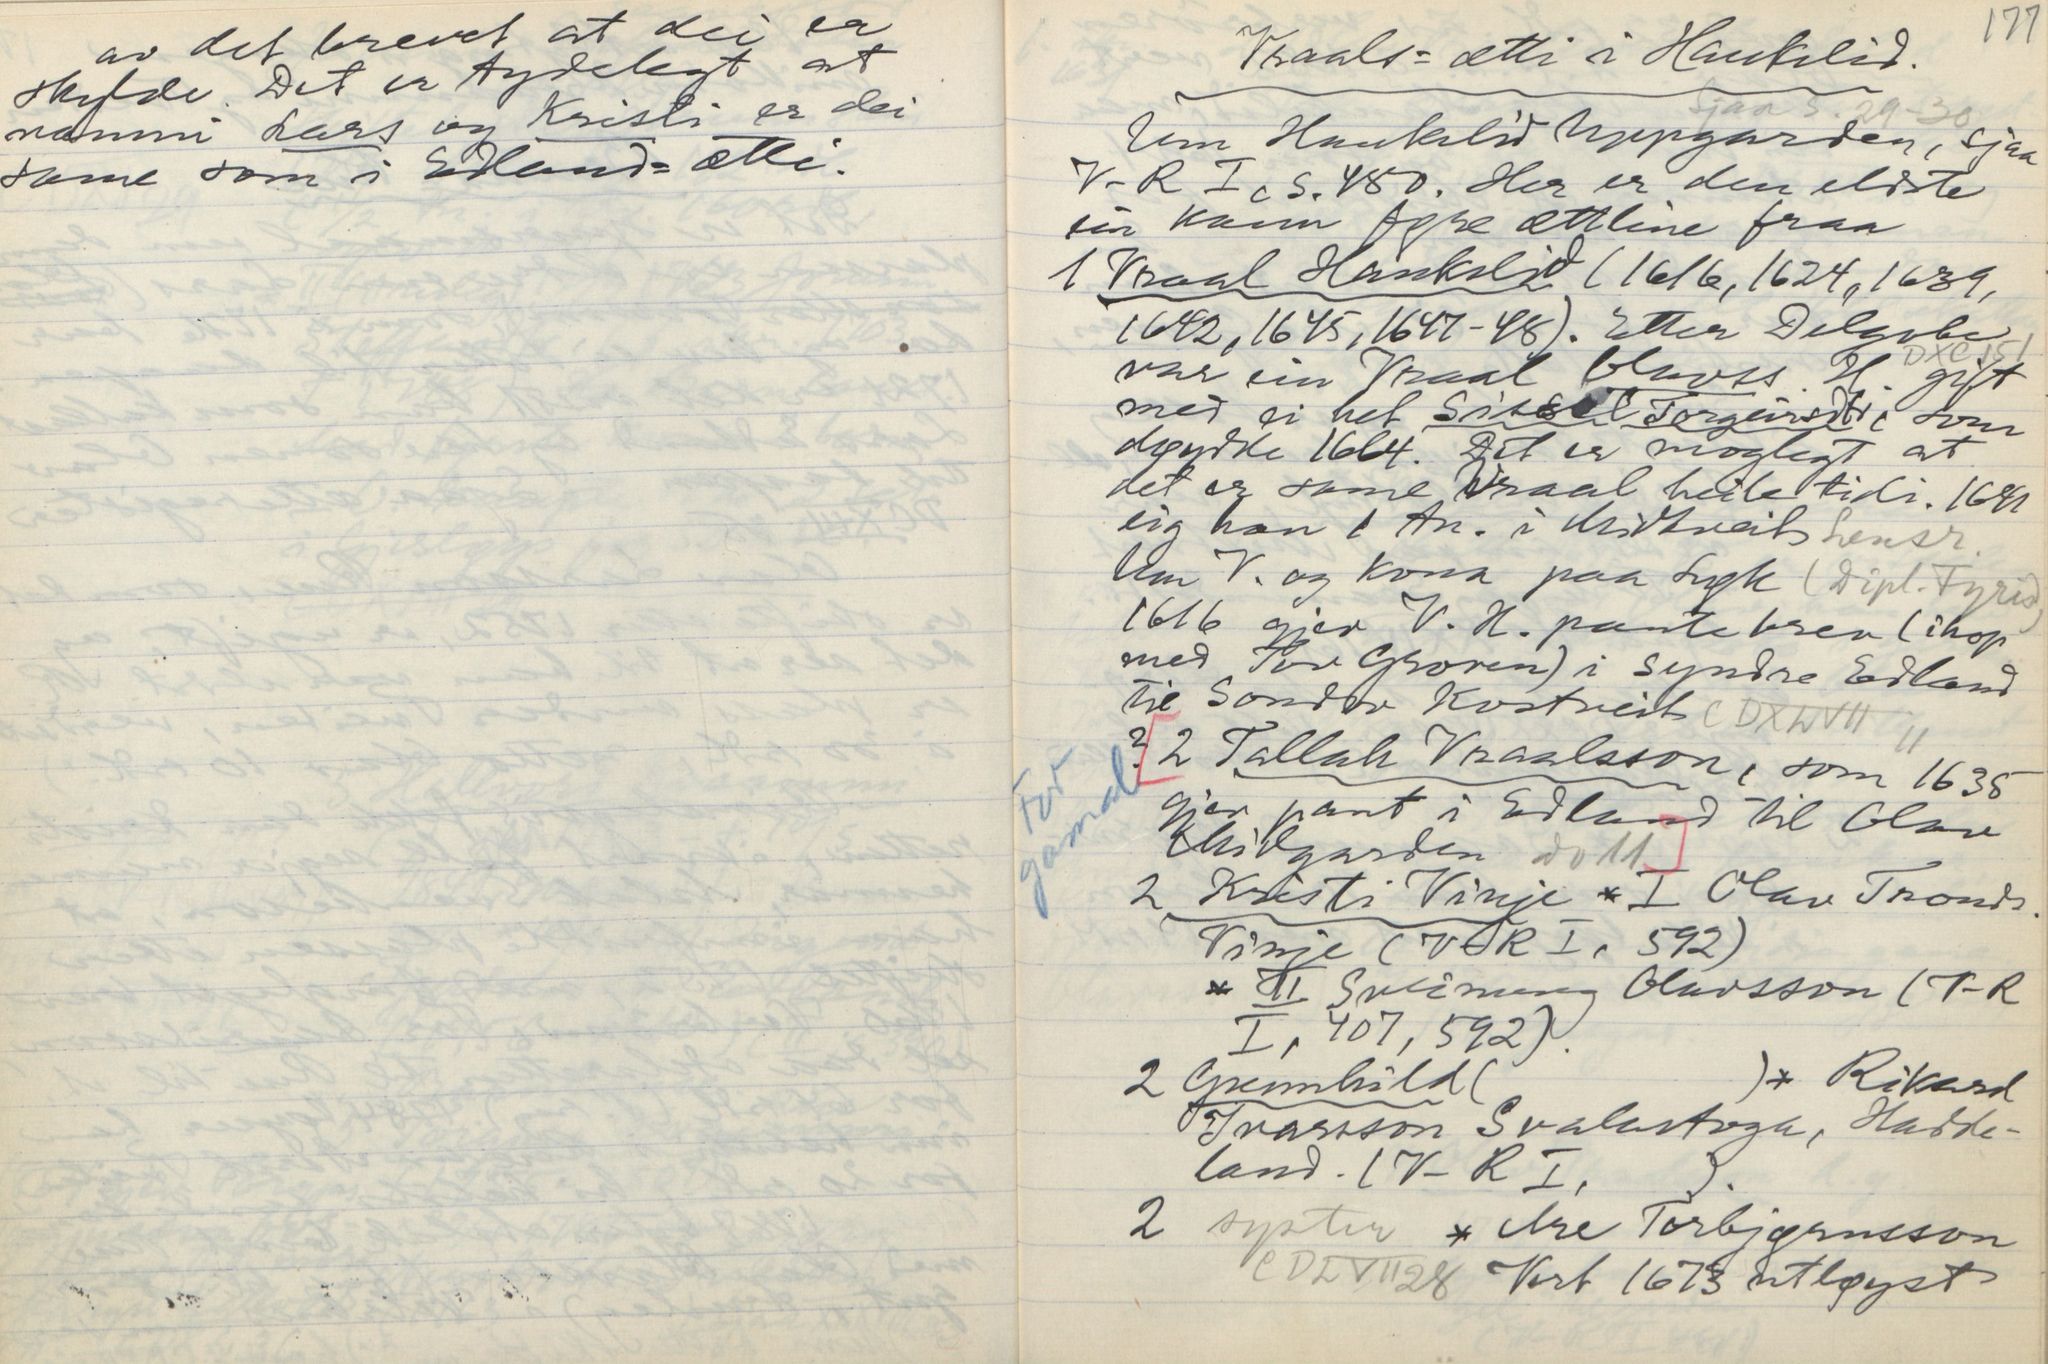 av det brevet at dei er
skylde. Det er tydelegt at
namni Lars og Kristi er dei
same som i Edland=ætti.
177
Vraals=ætti i Haukelid.
Sjaa S. 29-30
Um Haukelid Uppgarden, sjaa
V-R I, S. 450. Her er den eldste
ein kann føre ættline fraa
1 Vraal Haukelid (1616, 1624, 1639,
1642, 1645, 1647-48). Etter Delgobe
DXC 151
var ein Vraal Olavss. H. gift
med ei het Sissel Torgeirsdtr, som
døydde 1664. Det er moglegt at
det er same Vraal heile tidi. 1641
eig han 1 An. i Midtveit Lensr.
Um V. og kona paa Lygk (Dipl. Fyrisd.)
1616 gjev V. H. pantebrev (ihop
med Tov Groven) i Syndre Edland
til Sondov Kostveit CDXLVII 11
? [2 Tallak Vraalsson, som 1635
gjev pant i Edland til Olav
Midgarden do 11]
For
gamal
2 Kristi Vinje * I Olav Tronds.
Vinje (V-R I, 592)
* II Sveinung Olavsson (V-R
I, 407, 592).
2 Gunnhild ( ) * Rikard
Ivarsson Svalastoga, Hadde-
land. (V-R I, ).
2 syster * Are Torbjørnsson
CDLVII 28 Vert 1673 utløyst